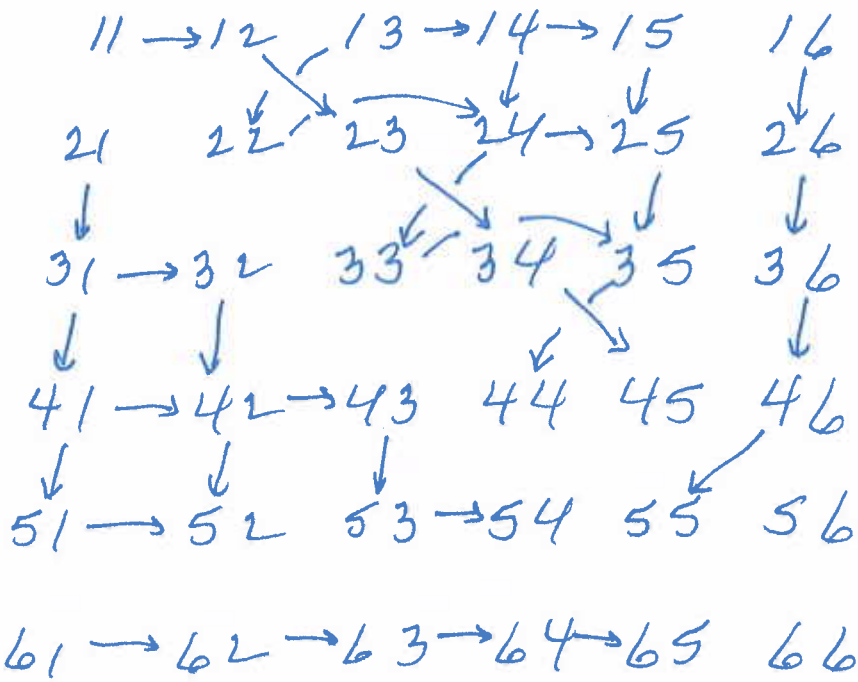 11 → 12 13 → 14 → 15 16
21 22 23 24 → 25 26
31 → 32 33 34 35 36
41 → 42 → 43 44 45 46
51 → 52 53 → 54 55 56
61 → 62 → 63 → 64 → 65 66